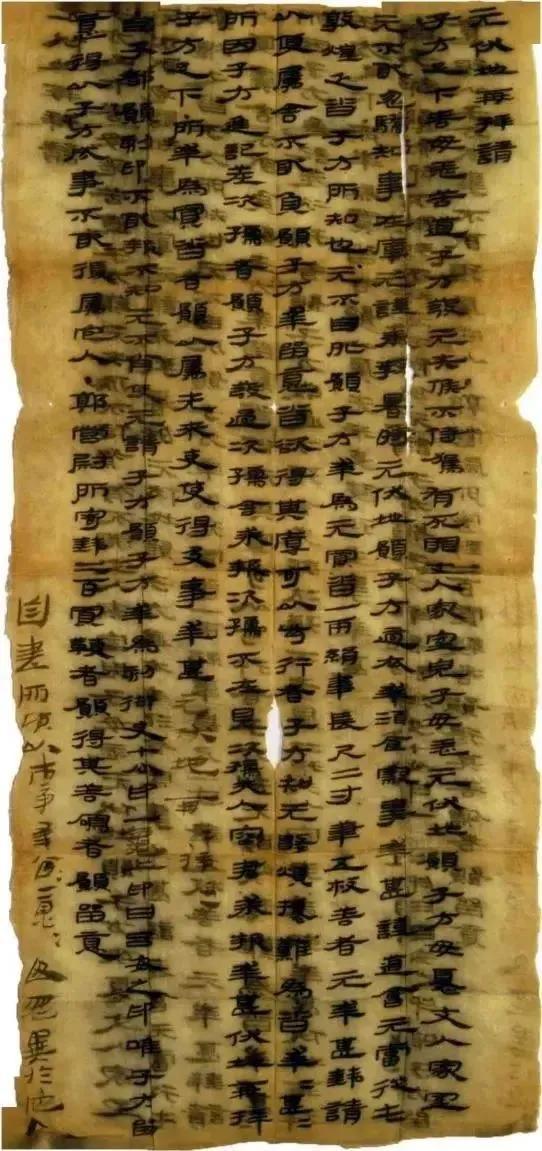 元伏地再拜請
子方足下善毋恙苦道子方發元失候不侍駕有死罪丈人家室兒子毋恙元伏地願子方毋憂丈人家室
元不敢忽驕知事在庫元謹奉教暑時元伏地願子方適衣幸酒食察事幸甚謹道會元當從屯
敦煌乏沓子方所知也元不自外願子方幸為元買沓一兩絹韋長尺二寸筆五枚善者元幸甚錢請
以便屬舍不敢負願子方幸留意沓欲得其厚可以步行者子方知元數煩擾難為沓幸=甚=
所因子方進記差次孺者願子方發過次孺舍求報次孺不在見次孺夫人容君求報幸甚伏地再拜
子方足下所幸為買沓者願以屬先來吏使得及事幸甚元伏地再拜
呂子都願刻印不敢報不知元不肖使元請子方願子方幸為刻御史七分印一龜上印曰呂安之印唯子方留
意得以子方成事不敢復屬它人郭營尉所寄錢二百買鞭者願得其善鳴者願留意
自書所願以市事幸留=意=毋忽異於它人